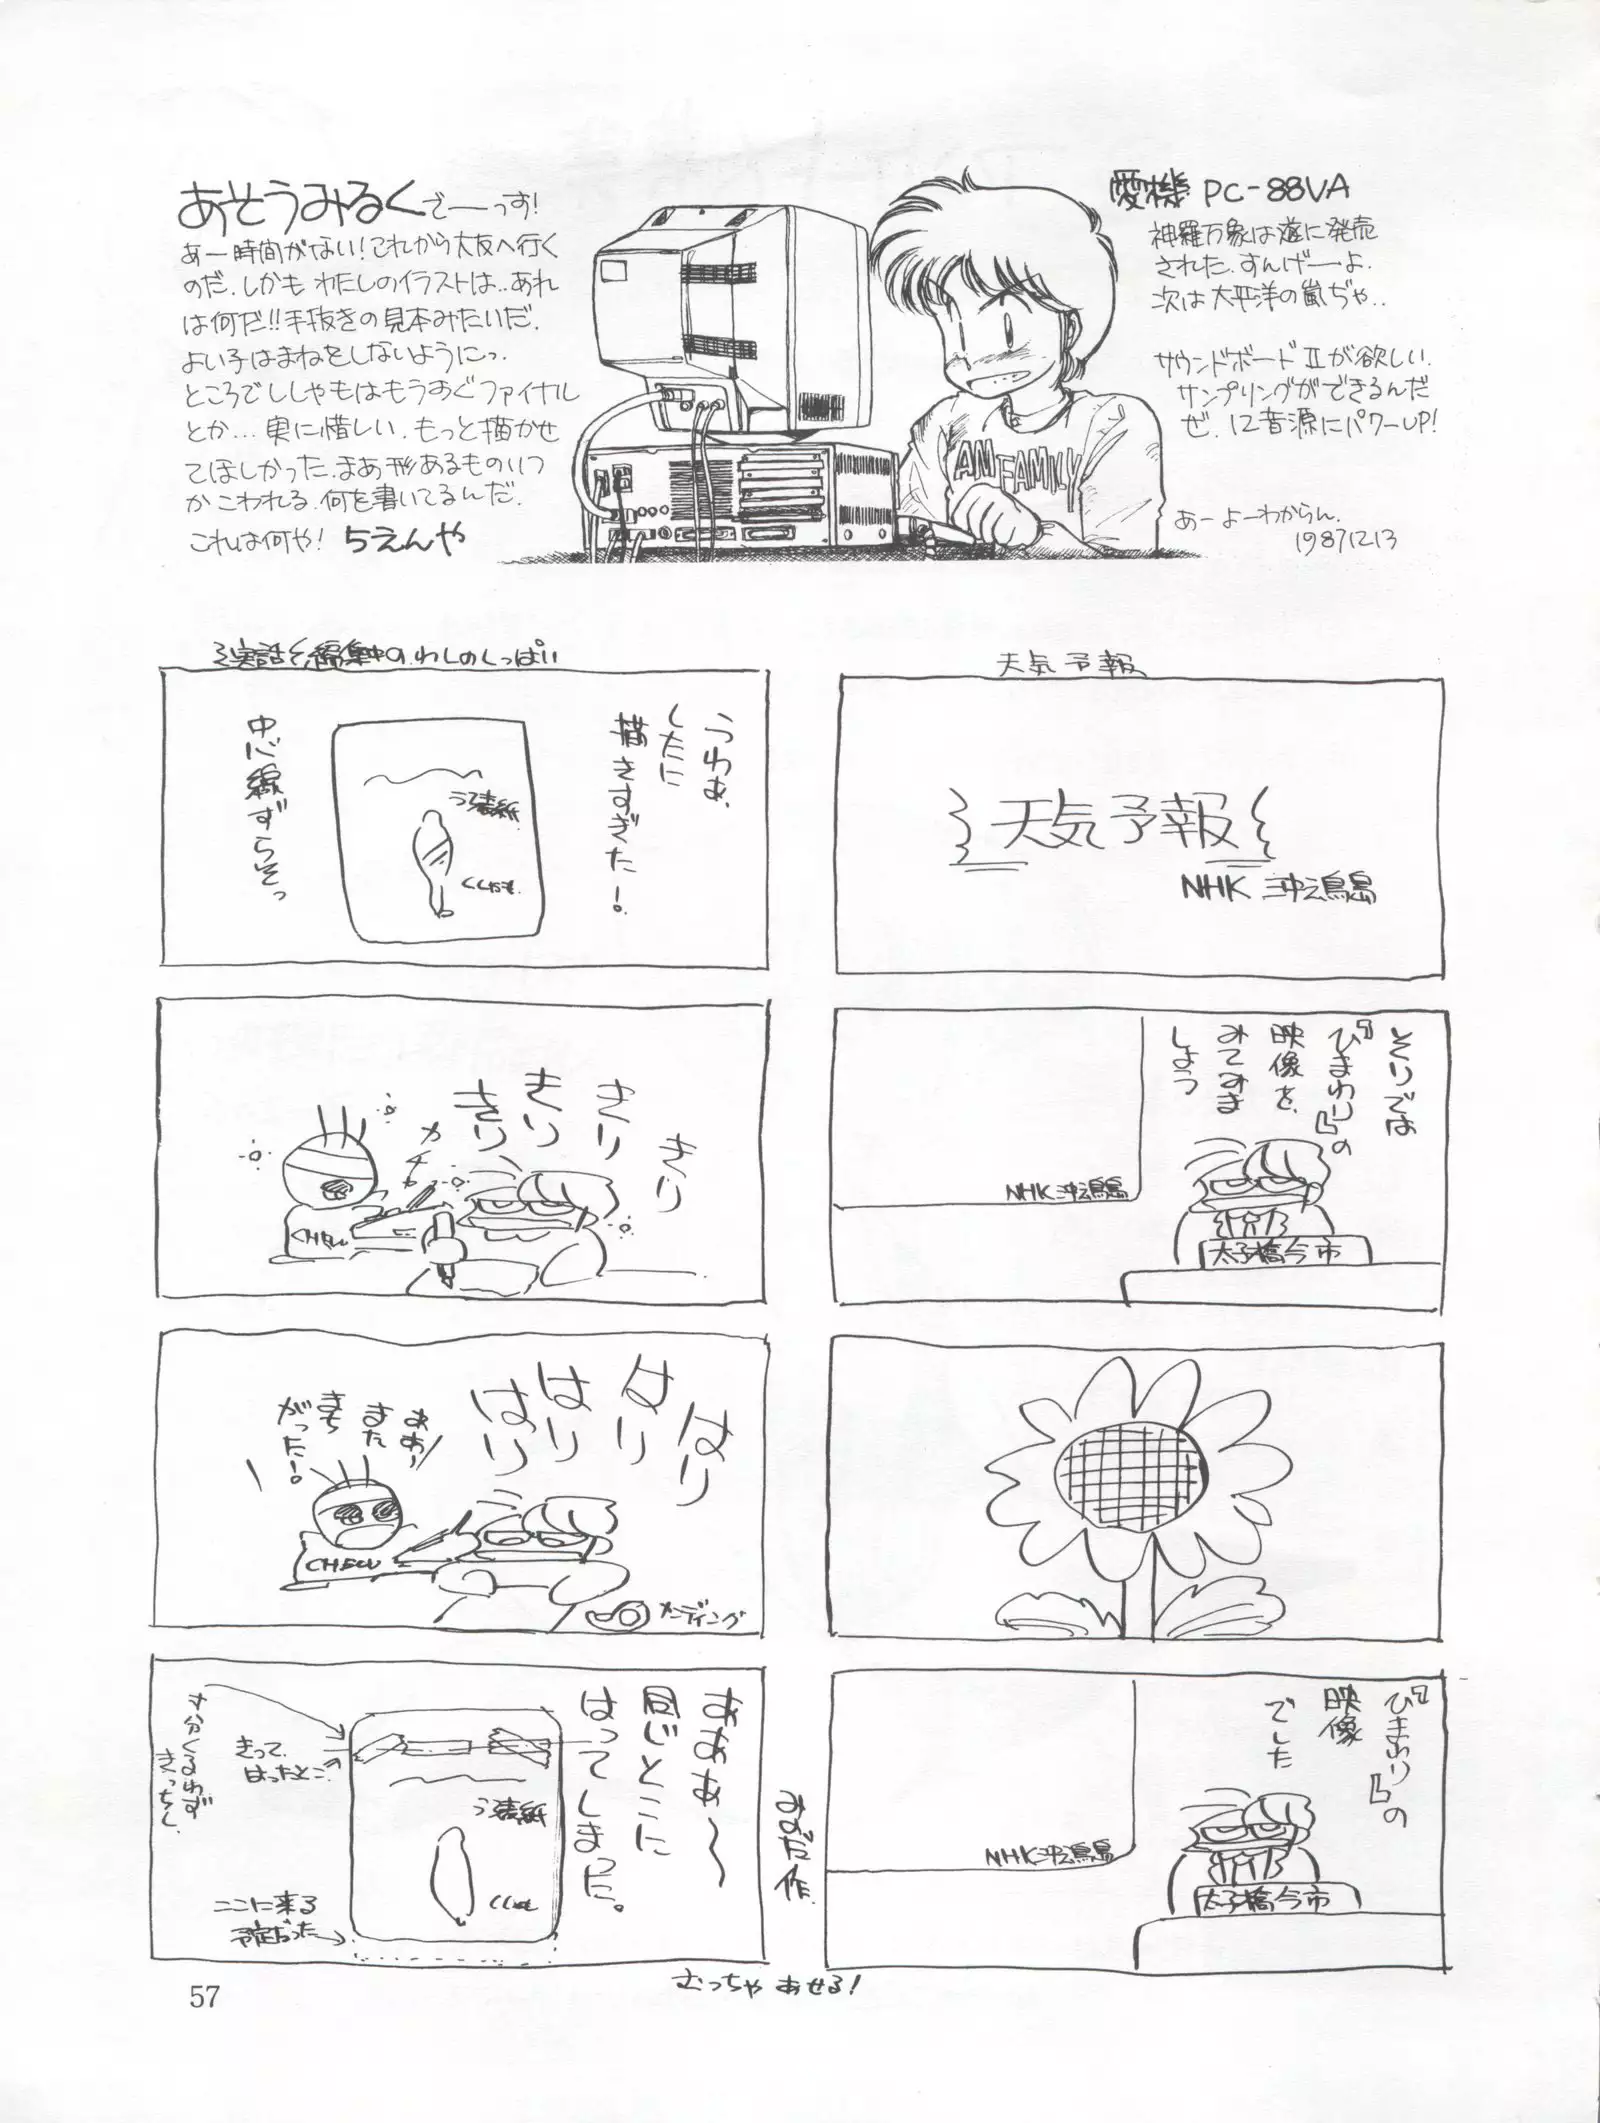 あそうみるくでーーっす!
あー時間がない!これから大友へ行く
のだ.しかも わたしのイラストは‥あれ
は何だ!!手抜きの見本みたいだ.
よい子はまねをしないようにっ.
ところでししゃもはもうすぐファイナル
とか…実に惜しい.もっと描かせ
てほしかった.まあ形あるものいつ
かこわれる.何を書いてるんだ.
これは何や! ちえんや
愛機 PC-88VA
神羅万象は遂に発売
された.すんげーーよ.
次は太平洋の嵐ぢゃ‥
サウンドボードⅡが欲しい.
サンプリングができるんだ
ぜ.12音源にパワーUP!
あーよーわからん.
19871213
AM FAMILY
天気予報
天気予報
NHK 沖ノ鳥島
それでは
『ひまわり』の
映像を、
みてみま
しょう
NHK沖ノ鳥島
太子橋今市
『ひまわり』の
映像
でした
NHK沖ノ鳥島
太子橋今市
実話 編集中の、わしのしっぱい
うわぁ、
したに
描きすぎた!
うら表紙
ししゃも
中心線ずらそっ
きり
きり
きり
きり、
カチャ
CHEW
はり
はり
はり
はり
ああー
また
まち
がった!
CHEW
メンディング
あああ〜
同じとこに
はってしまった。
うら表紙
ししゃも
きって、
はったとこ
寸分くるわず
きっちし
ここに来る
予定だった
みずだ作
むっちゃ あせる!
57